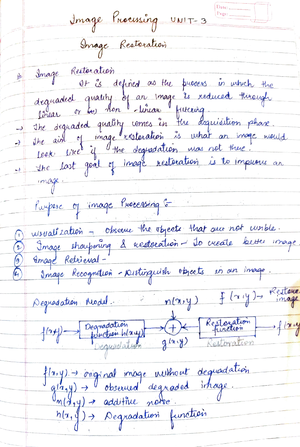 Image Processing UNIT-3
Image Restoration
Image Restoration
It is defined as the process in which the
degraded quality of an image is reduced through
linear or non-linear filtering.
→ The degraded quality comes in the acquisition phase.
→ The aim of image restoration is what an image would
look like if the degradation was not true.
→ The last goal of image restoration is to improve an
image.
Purpose of image Processing :-
① visualization - Observe the objects that are not visible.
② Image sharpening & restoration - To create better image
③ Image Retrieval -
④ Image Recognition - Distinguish objects in an image.
Degradation Model. n(x,y) f(x,y) → Restored image
f(x,y) → Degradation function h(x,y) → + → Restoration function → f(x,y)
Degradation g(x,y) Restoration
f(x,y) → original image without degradation
g(x,y) → observed degraded image.
n(x,y) → additive noise
h(x,y) → Degradation function